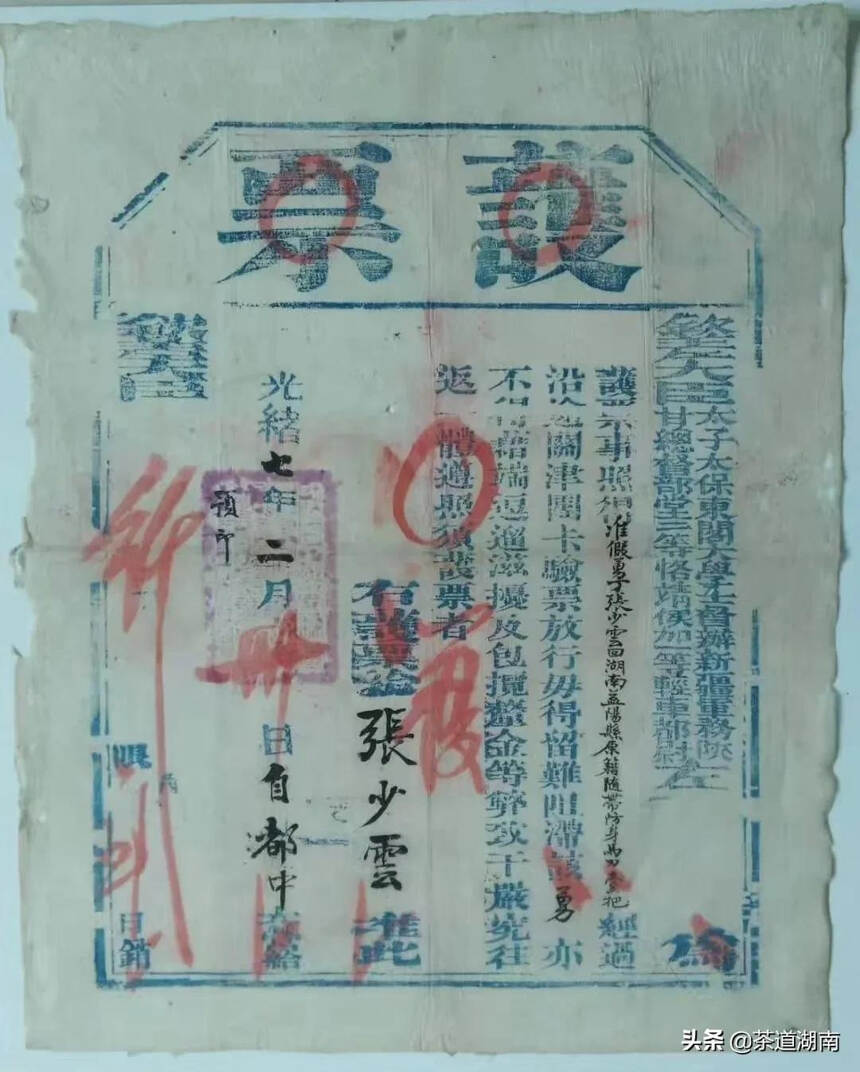 護票
欽差大臣太子太保東閣大學士督辦新疆軍務陝
甘總督部堂二等恪靖侯加一等輕車都尉左
為
護票事照得准假勇丁張少雲回湖南益陽縣原籍隨帶防身馬刀壹把經過
沿途關津團卡驗票放行毋得留難阻滯該勇亦
不得藉端逗遛滋擾及包攬釐金等弊致干嚴究往
返一體遵照須護票者
右護票給張少雲准此
護
光緒七年二月卅日自都中
預印
給
欽差大臣
限
日銷
行
头条 @茶道湖南